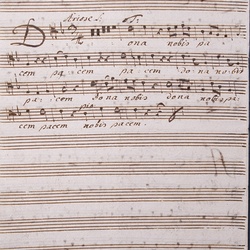 Arioso. T:
Dona nobis pa
cem pa cem pa cem do na no bis
pa cem do na nobis dona nobis pa
cem pacem nobis pacem.